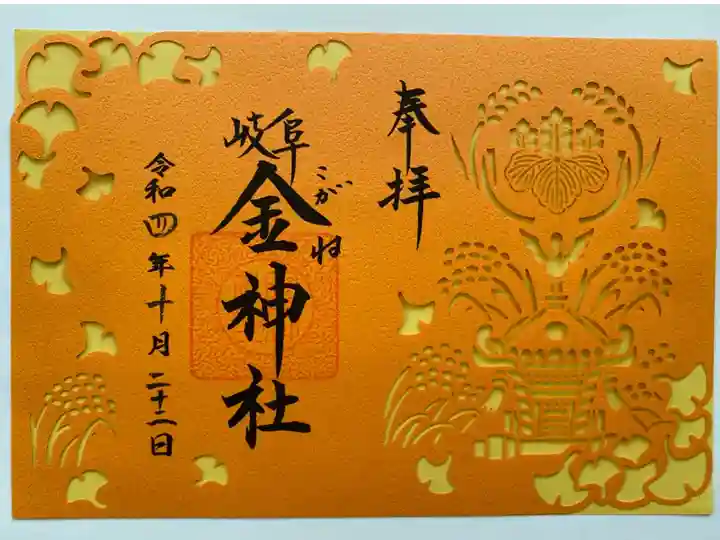 奉拝
岐阜
金神社
こがね
令和四年十月二十二日